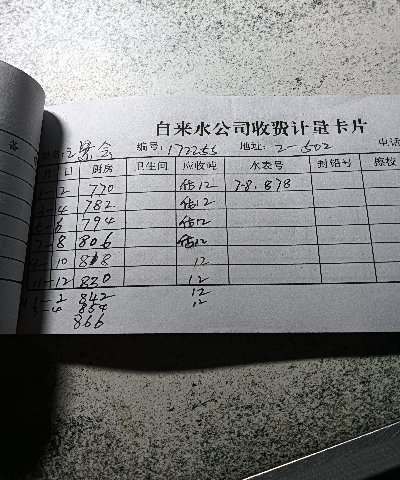 自来水公司收费计量卡片
编号: 172255 地址: 2-502 电话
月 日 厨房 卫生间 应收吨 水表号 封铅号
1-2 770 估12 7-8.878
3-4 782 估12
5-6 794 估12
7-8 806 估12
9-10 818 12
11-12 830 12
1-2 842 12
3-4 854 12
866